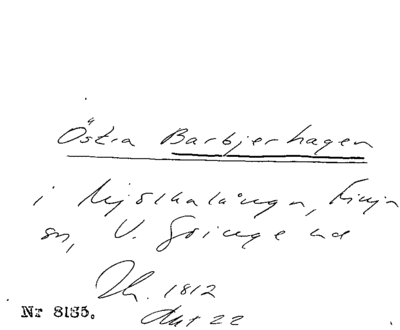 Östra Barbjerhagen
i Mjölkalånga, Finja
sn, V. Göinge hd
1812
Akt 22
Nr 8135.